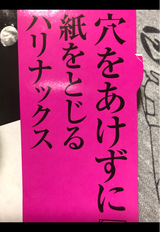 穴をあけずに「
紙をとじる
ハリナックス